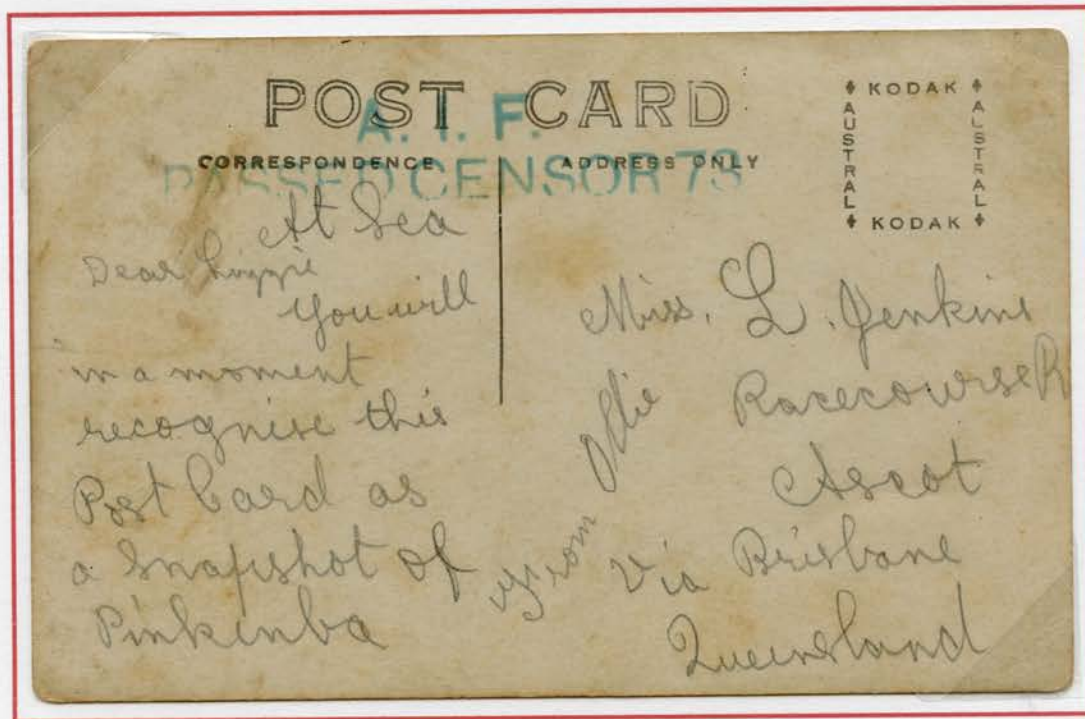 POST CARD
A. I. F.
PASSED CENSOR 73
CORRESPONDENCE
ADDRESS ONLY
KODAK
AUSTRAL
AUSTRAL
KODAK
At Sea
Dear Lizzie
You will
in a moment
recognise this
Post Card as
a Snapshot of
Pinkenba
from
Miss. L. Jenkins
Racecourse R
Ascot
Via Brisbane
Queensland